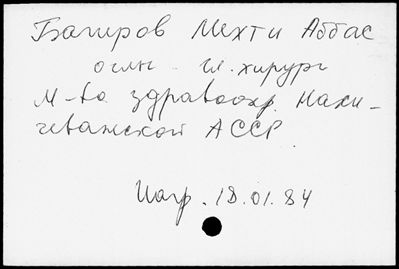 Багиров Мехти Аббас
оглы - гл. хирург
М-ва здравоохр. Нахи-
чеванской АССР.
Нагр. 18.01.84